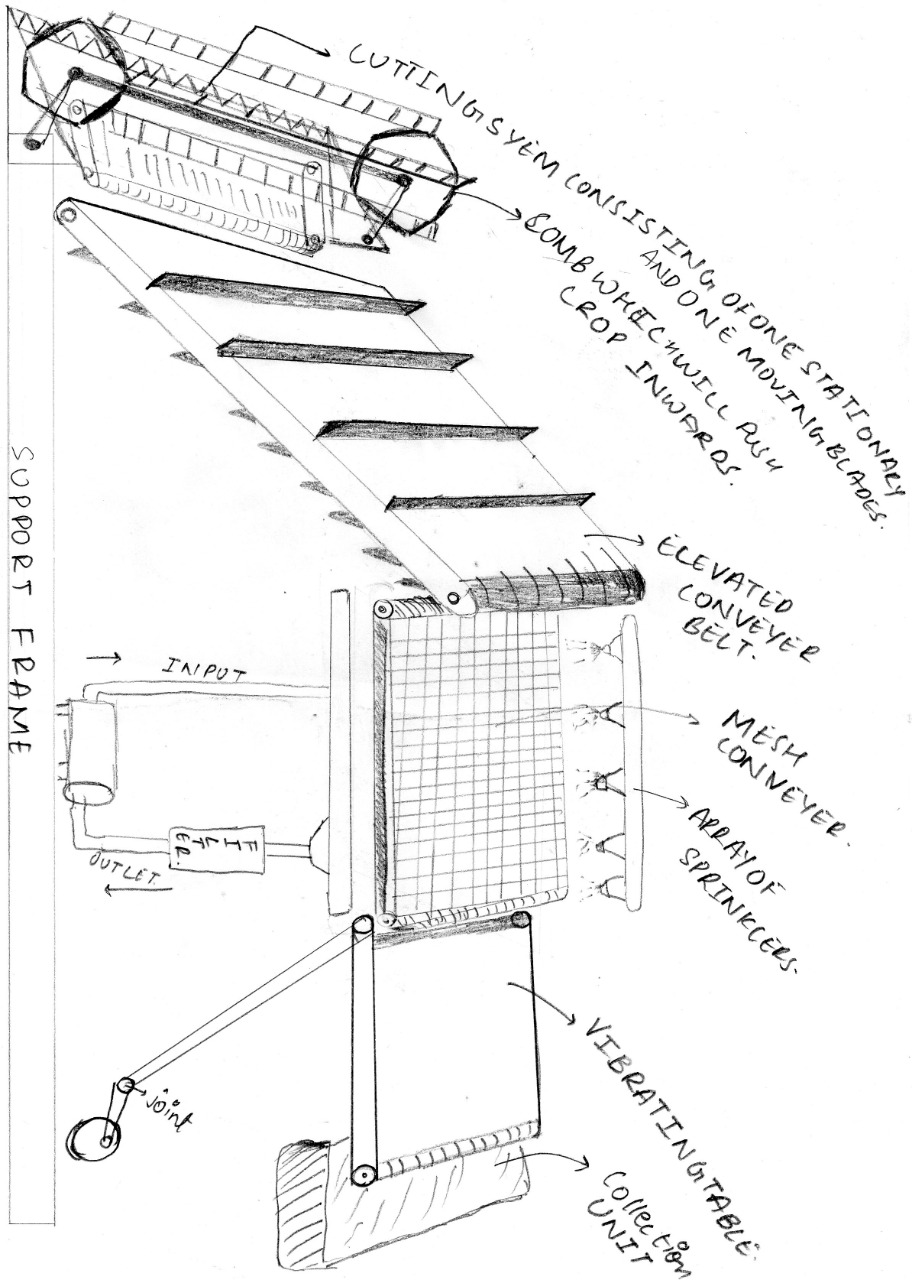 CUTTING SYEM CONSISTING OF ONE STATIONARY
AND ONE MOVING BLADES.
BOMB WHICH WILL PUSH
CROP INWARDS.
ELEVATED
CONVEYER
BELT.
MESH
CONVEYER.
ARRAY OF
SPRINKLERS.
VIBRATING TABLE.
Collection
UNIT
SUPPORT FRAME
INPUT
FILTER.
OUTLET
Joint